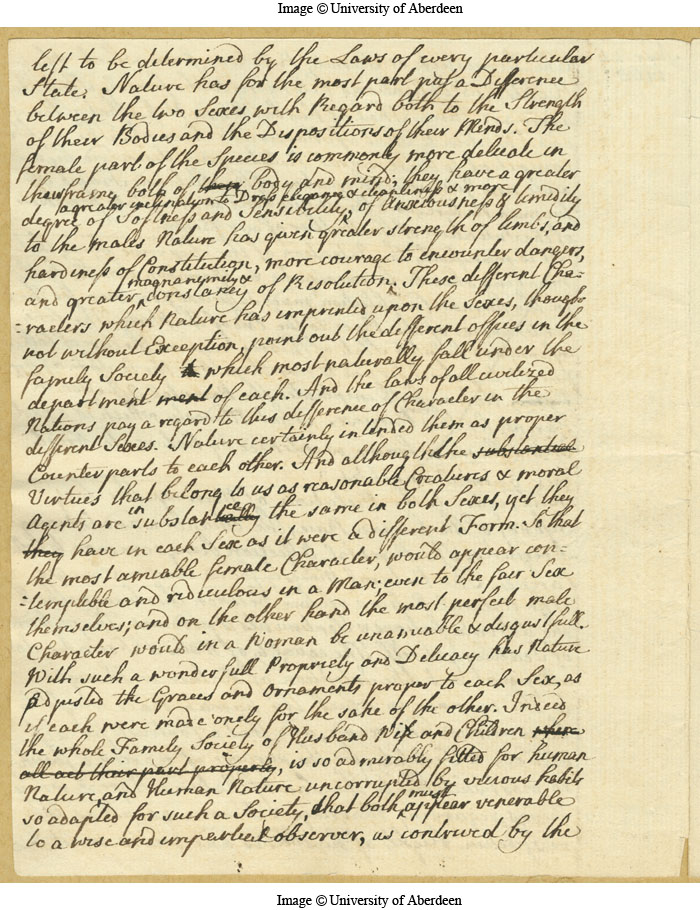 Image © University of Aberdeen
left to be determined by the Laws of every particular
State. Nature has for the most part put a Difference
between the two Sexes with Regard both to the Strength
of their Bodies and the Dispositions of their Minds. The
female part of the Species is commonly more delicate in
their frame both of body and mind; they have a greater
a greater inclination to Dress elegance & cleanliness & more
degree of Softness and Sensibility, of Anxiousness & timidity
to the males Nature has given greater strength of limbs, and
hardiness of Constitution, more courage to encounter dangers,
magnanimity &
and greater constancy of Resolution. These different Cha-
-racters which Nature has imprinted upon the Sexes, though
not without Exception, point out the different offices in the
family Society which most naturally fall under the
department ment of each. And the laws of all civilized
Nations pay a regard to this difference of Character in the
different Sexes. Nature certainly intended them as proper
Counterparts to each other. And although the substantial
Virtues that belong to us as reasonable Creatures & moral
Agents are in substance the same in both Sexes, yet they
they have in each Sex as it were a different Form. So that
the most amiable female Character, would appear con-
-temptible and ridiculous in a Man; even to the fair Sex
themselves; and on the other hand the most perfect male
Character would in a Woman be unamiable & disgustfull.
With such a wonderfull Propriety and Delicacy has Nature
adjusted the Graces and Ornaments proper to each Sex, as
if each were made onely for the sake of the other. Indeed
the whole Family Society of Husband Wife and Children where
all act their part properly, is so admirably fitted for human
Nature, and Human Nature uncorrupted by vicious habits
must
so adapted for such a Society, that both appear venerable
to a wise and impartial observer, as contrived by the
Image © University of Aberdeen